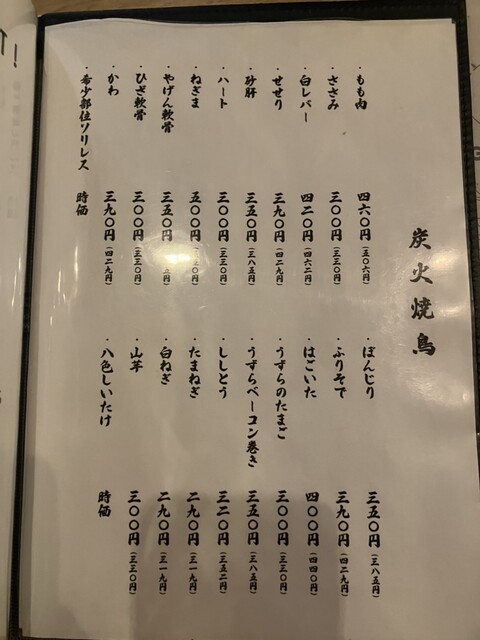 炭火焼鳥
・もも肉 四六〇円(五〇六円)
・ささみ 三〇〇円(三三〇円)
・白レバー 四二〇円(四六二円)
・せせり 三九〇円(四二九円)
・砂肝 三五〇円(三八五円)
・ハート 三〇〇円(三三〇円)
・ねぎま 五〇〇円
・やげん軟骨 三五〇円
・ひざ軟骨 三〇〇円(三三〇円)
・かわ 三九〇円(四二九円)
・希少部位ソリレス 時価
・ぼんじり 三五〇円(三八五円)
・ふりそで 三九〇円(四二九円)
・はごいた 四〇〇円(四四〇円)
・うずらのたまご 三〇〇円(三三〇円)
・うずらベーコン巻き 三五〇円(三八五円)
・ししとう 三二〇円(三五二円)
・たまねぎ 二九〇円(三一九円)
・白ねぎ 二九〇円(三一九円)
・山芋 三〇〇円(三三〇円)
・八色しいたけ 時価